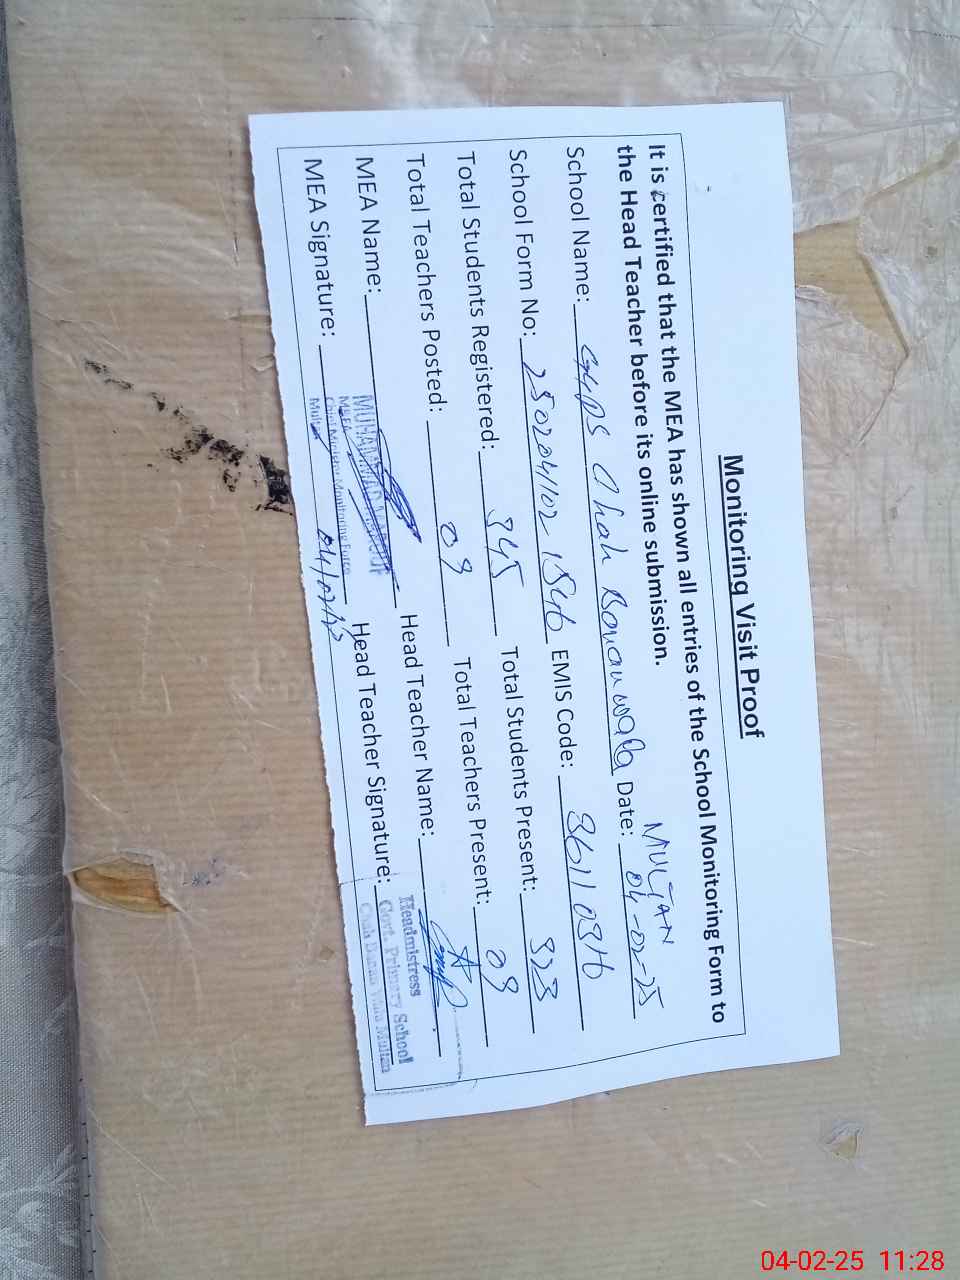 Monitoring Visit Proof
It is certified that the MEA has shown all entries of the School Monitoring Form to
the Head Teacher before its online submission.
MULTAN
School Name: GGPS Chah Bonanwala Date: 04-02-25
School Form No: EMIS Code:
Total Students Registered: 345 Total Students Present: 323
Total Teachers Posted: 09 Total Teachers Present: 09
MEA Name: Head Teacher Name:
MEA Signature: Head Teacher Signature:
MUHAMMAD
MEA
Chief Ministers Monitoring Force
Multan
04/02/25
Headmistress
Govt. Primary School
Chah Multan
04-02-25 11:28